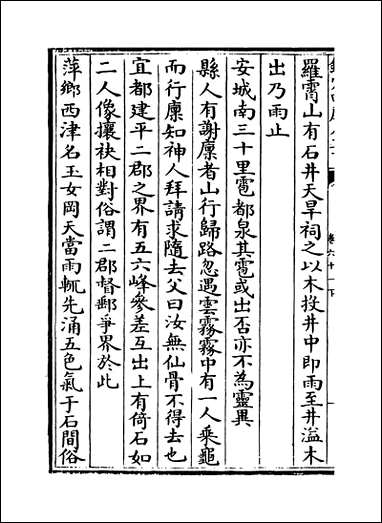 羅霄山有石井天旱祠之以木投井中即雨至井溢木
出乃雨止
安城南三十里雹都泉其雹或出否亦不為靈異
縣人有謝廪者山行歸路忽遇雲霧霧中有一人乘龜
而行廪知神人拜請求隨去父曰汝無仙骨不得去也
宜都建平二郡之界有五六峰參差互出上有倚石如
二人像攘袂相對俗謂二郡督郵爭界於此
萍鄉西津名玉女岡天當雨輒先涌五色氣于石間俗